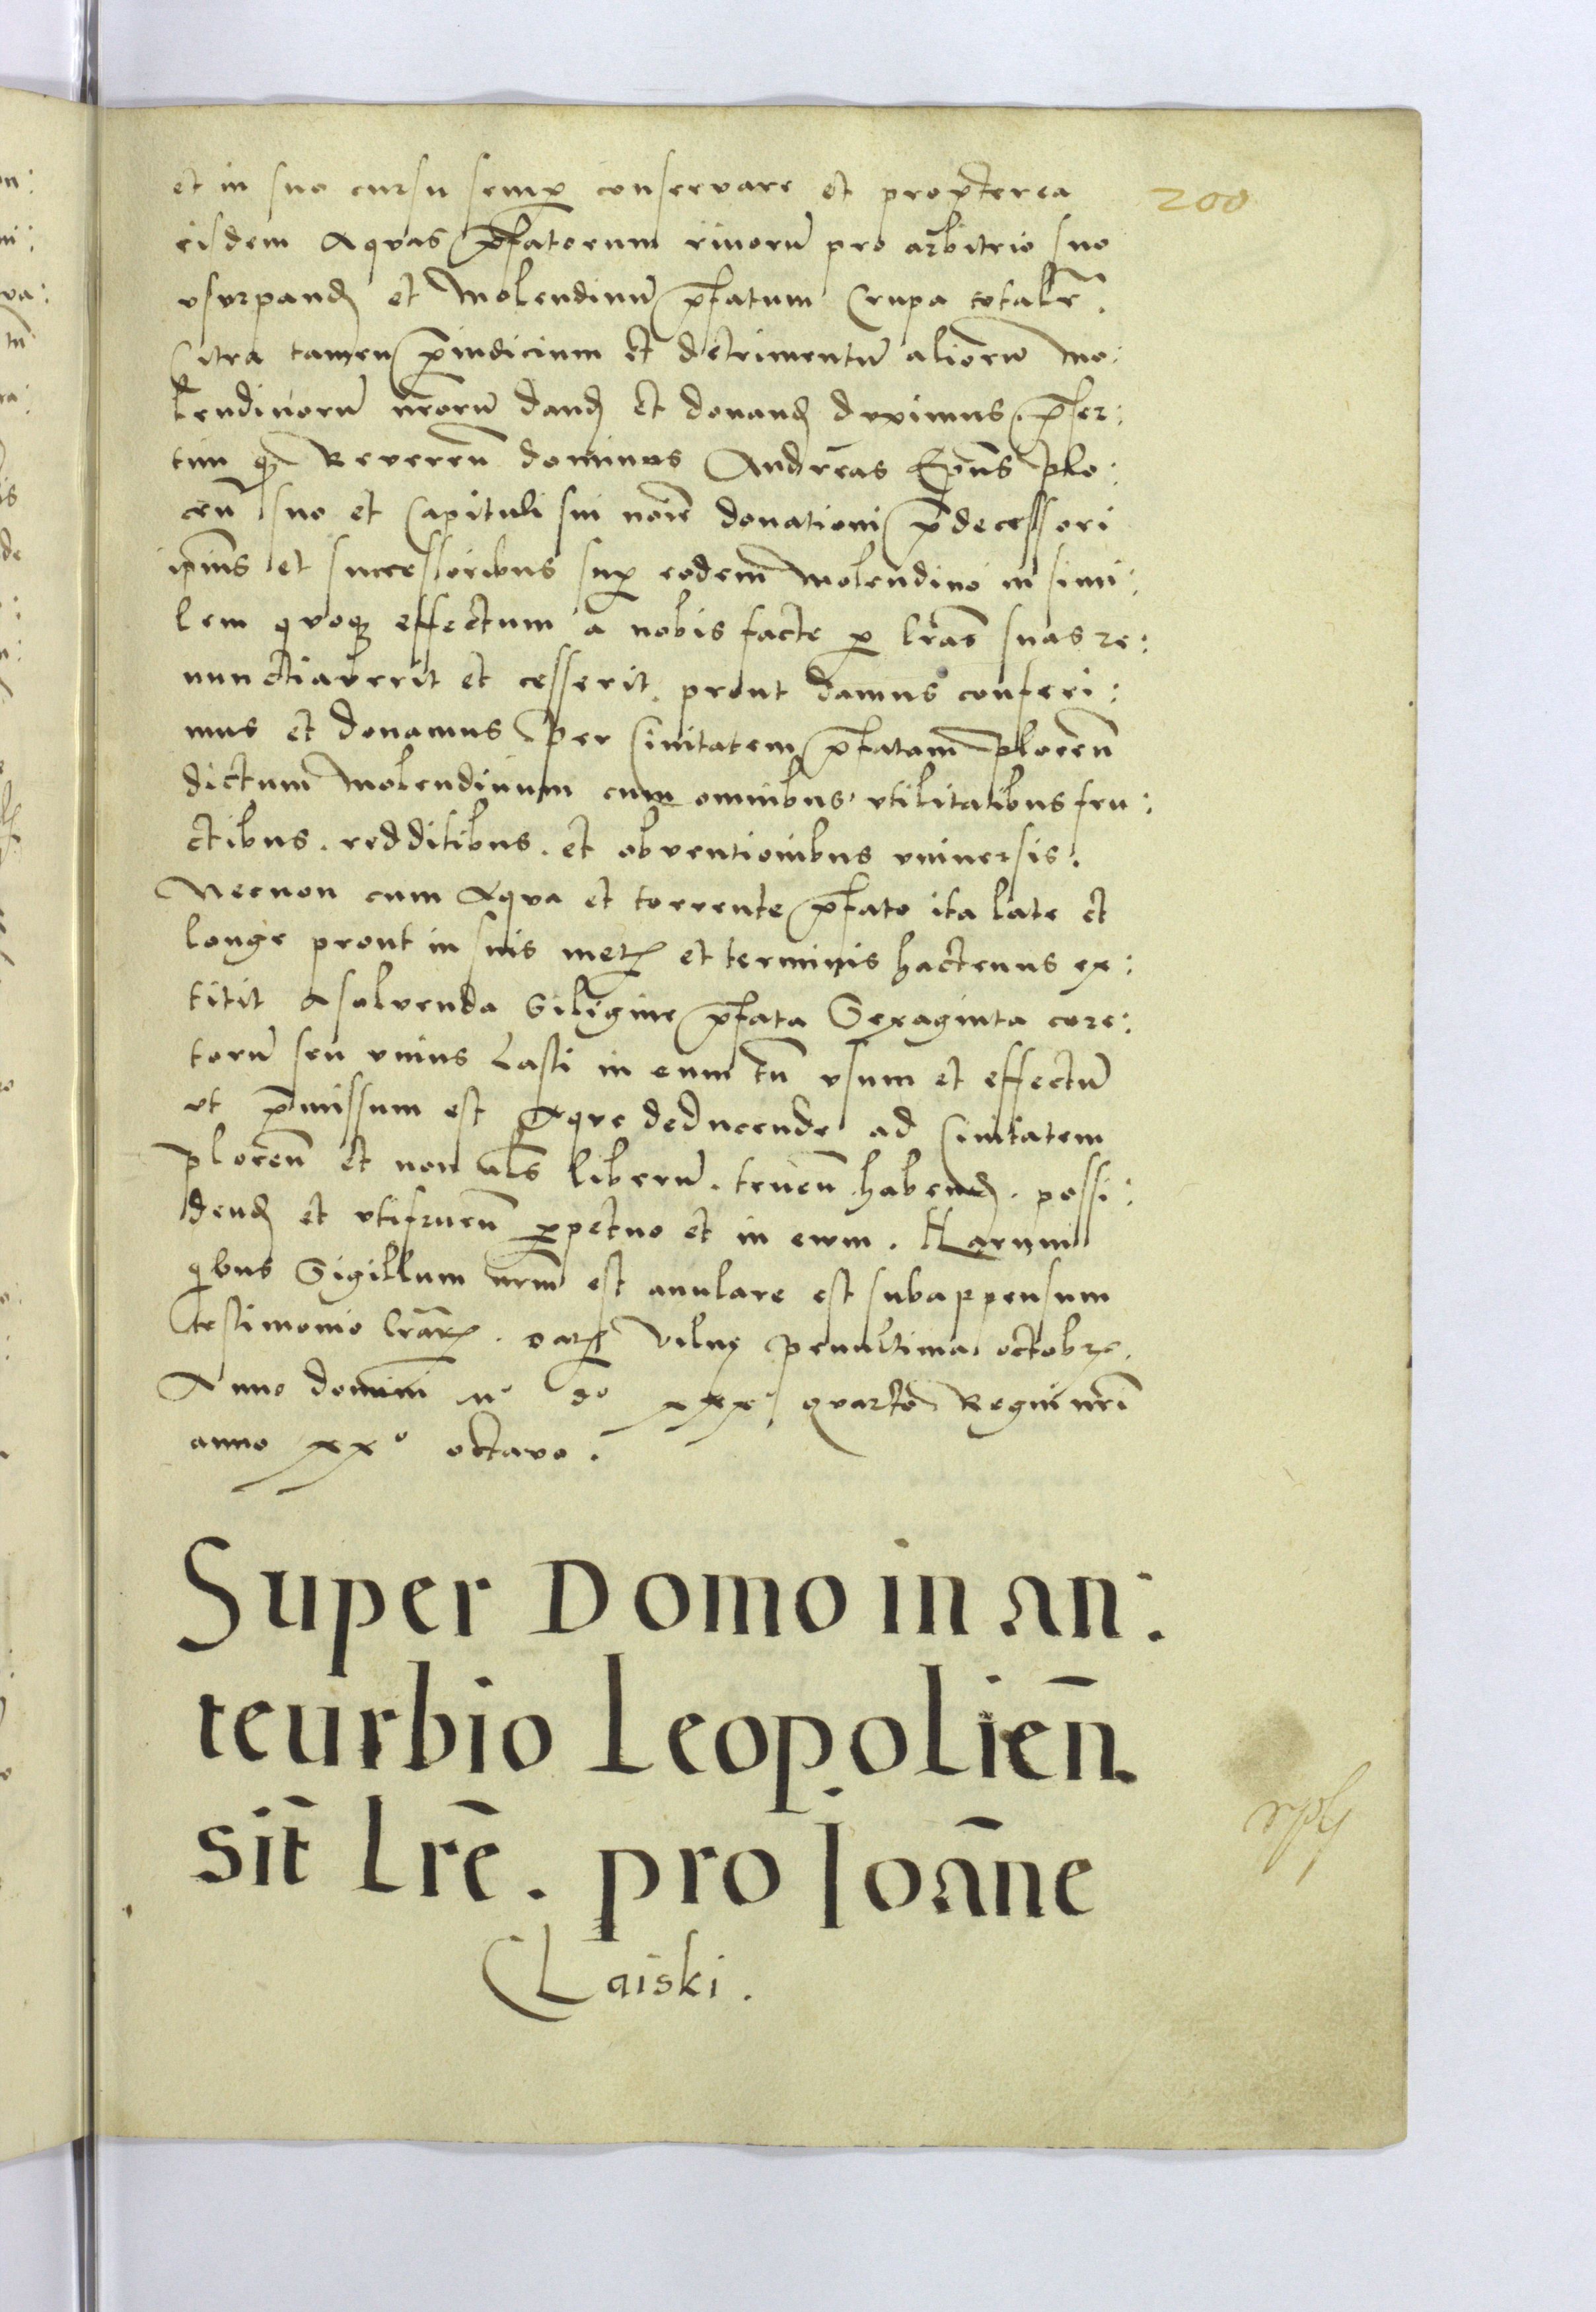 et in suo cursu semp conservare et propterea
200
eisdem Aquas p̄fatorum rivorū pro arbitrio suo
usurpand et Molendinū p̄fatum Crupa totalr̄.
Citra tamen p̄iudicium et detrimentū aliorū mo:
lendinorū nr̄orū dand et donand duximus. p̄ser:
tim q Reveren̄ dominus Andreas Ep̄us Plo:
cen̄ suo et Capituli sui noīe donationi p̄decessori
ip̄ius et successoribus sup eodem Molendino in simi:
lem quoq effectum a nobis facte p lr̄as suas re:
nunctiaverit et cesserit. prout damus conferi:
mus et donamus Per Civitatem p̄fatam Plocen̄
dictum Molendinum cum omnibus utilitatibus fru:
ctibus. redditibus. et obventionibus universis.
Necnon cum Aqua et torrente p̄fato ita late et
longe prout in suis metis et terminis hactenus ex:
titit A solvenda Siligine p̄fata Sexaginta core:
torū seu unius Lasti in eum tn̄ usum et effectū
ut p̄missum est Aque deducende ad Civitatem
Plocen̄ et non al̄s liberū. tenen̄ habend. possi:
dend et utifruen̄ ppetuo et in evum. Harum
quibus Sigillum nr̄m est anulare est subappensum
testimonio lr̄arum. Datum Vilnę penultima octobris.
Anno domini Mº Dº xxxº quarto Regni nr̄i
anno xxº octavo.
Super Domo in an:
teurbio Leopolien̄
sit̄ Lr̄e. pro Joān̄e
Laiski.